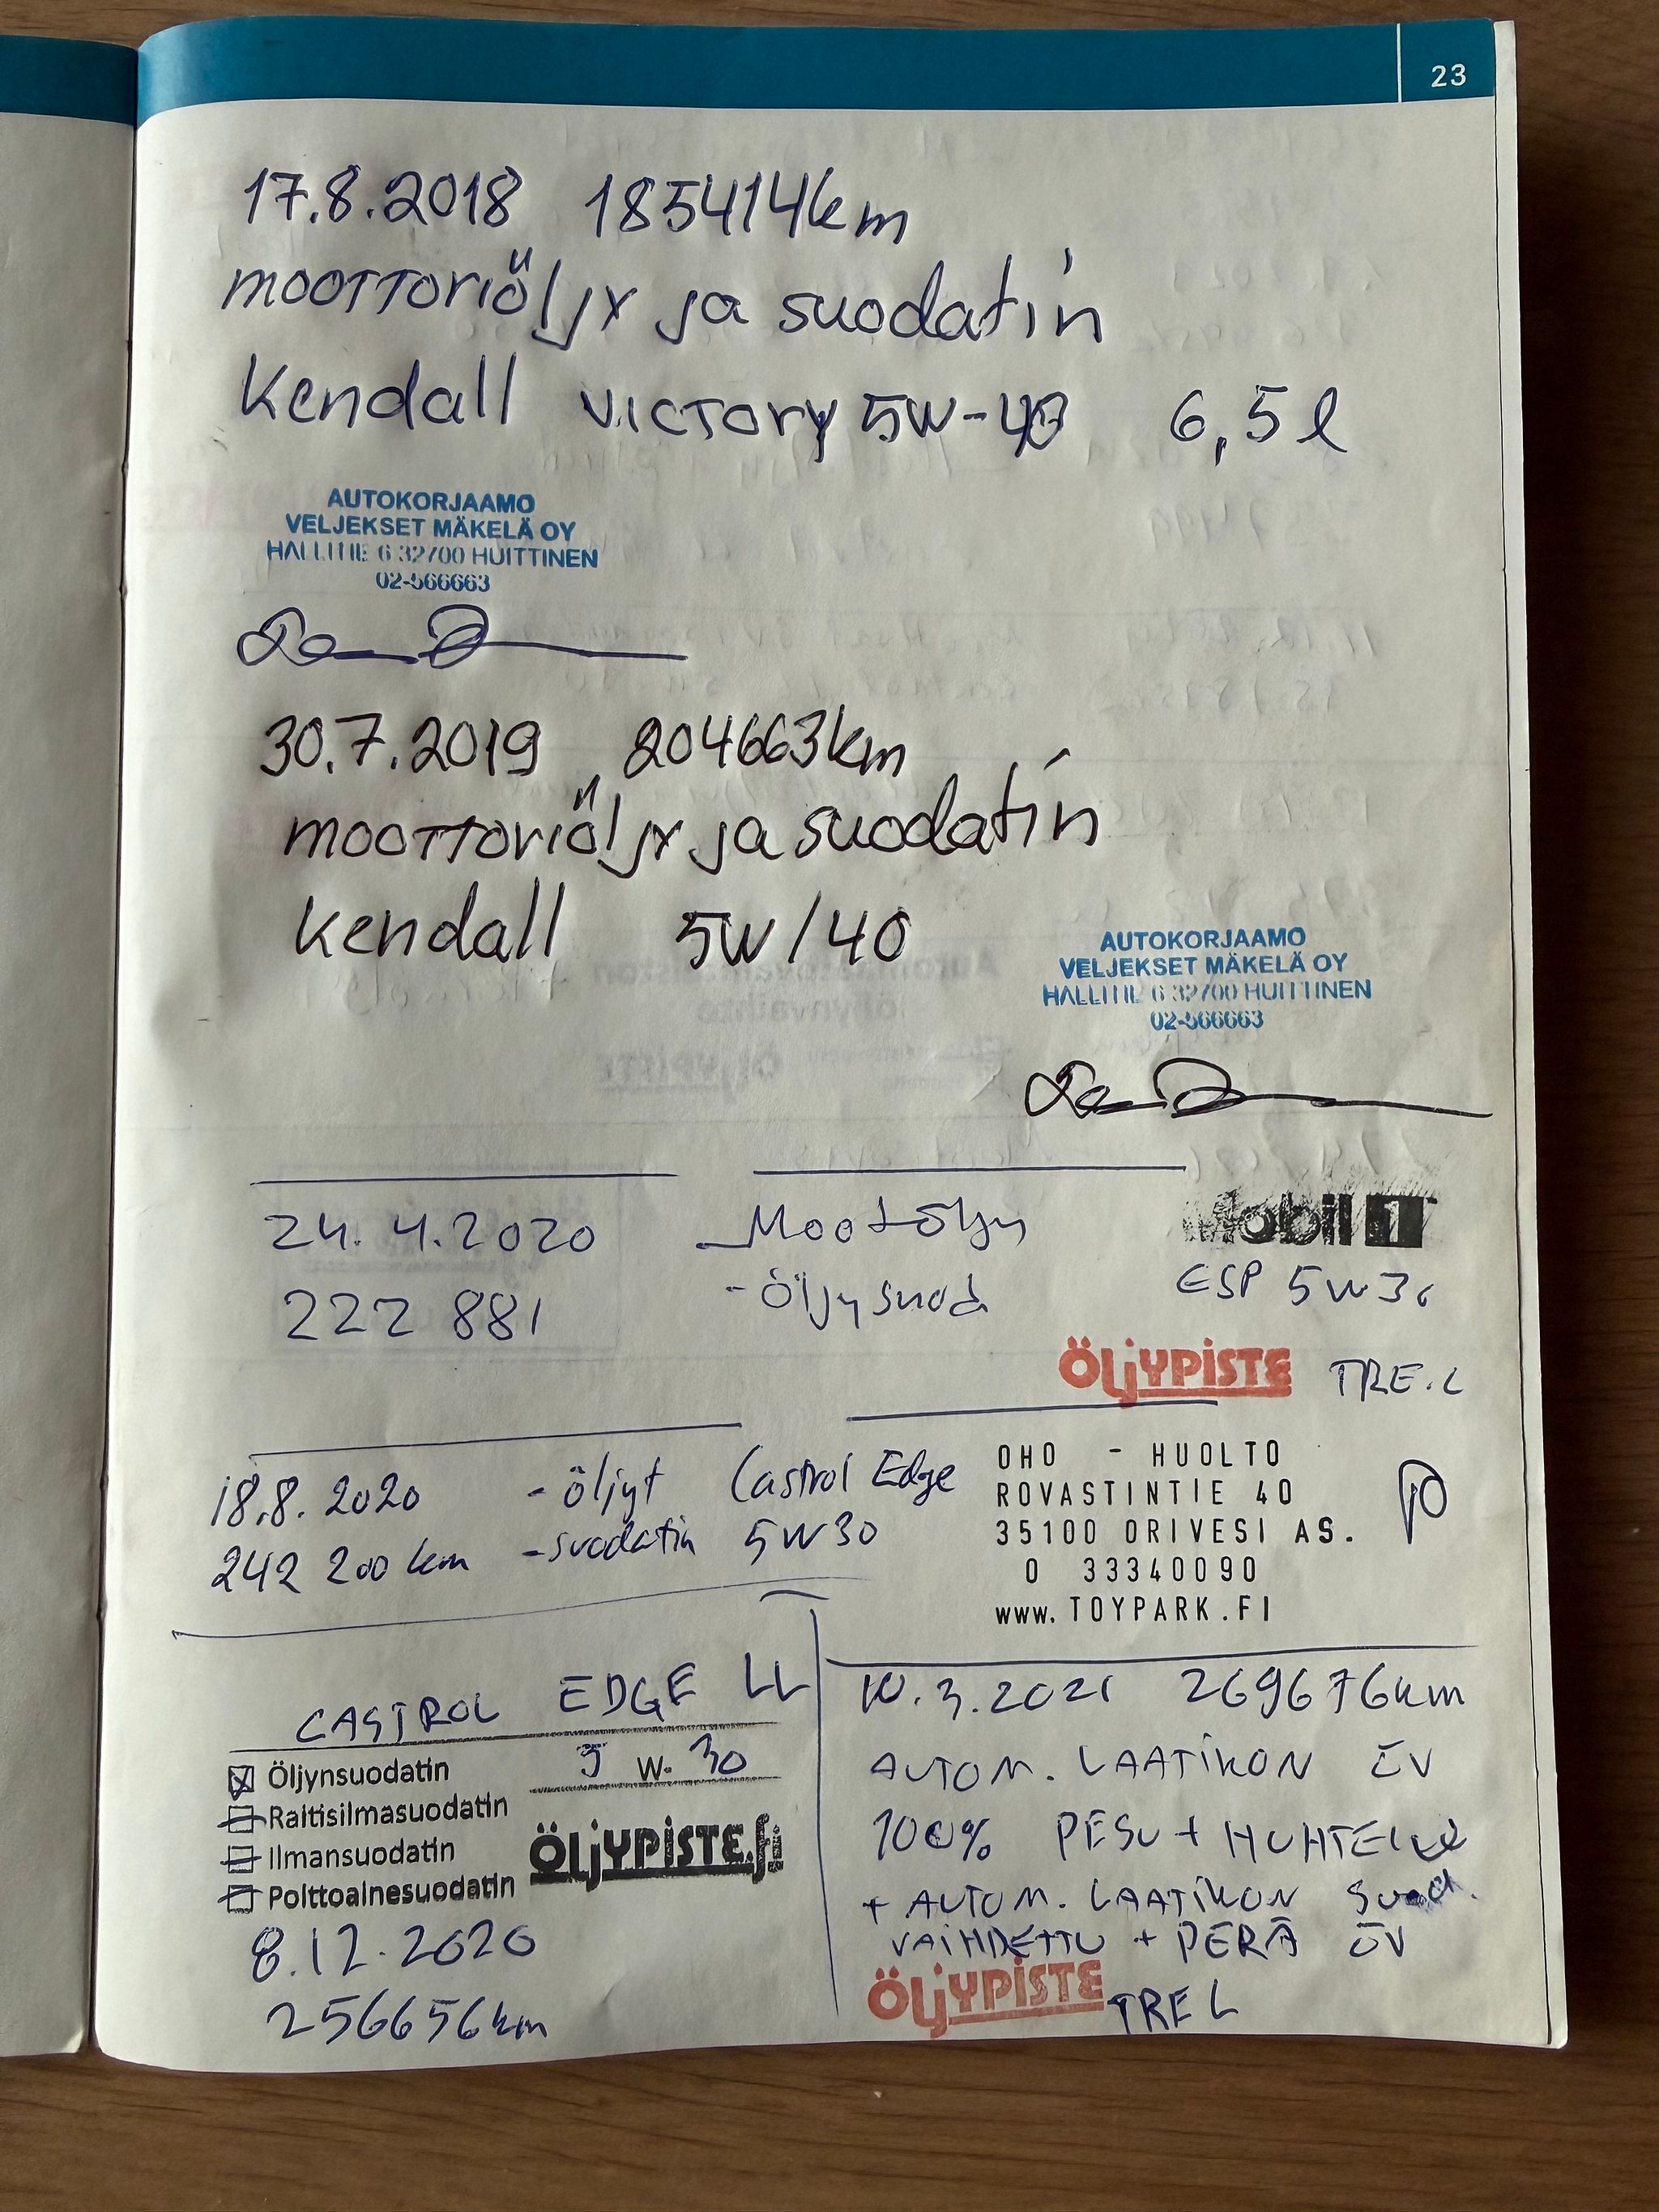 23
17.8.2018 185414km
moottoriöljy ja suodatin
Kendall VICTORY 5W-40 6,5 l
AUTOKORJAAMO
VELJEKSET MÄKELÄ OY
HALLITIE 6 32700 HUITTINEN
02-566663
30.7.2019 204663km
moottoriöljy ja suodatin
Kendall 5W/40
AUTOKORJAAMO
VELJEKSET MÄKELÄ OY
HALLITIE 6 32700 HUITTINEN
02-566663
24.4.2020 - Mootöljy Mobil 1
222 881 - Öljysuod ESP 5W30
ÖLJYPISTE TRE.L
18.8.2020 - öljyt Castrol Edge
242 200 km - suodatin 5W30
OHO - HUOLTO
ROVASTINTIE 40
35100 ORIVESI AS.
0 33340090
www.TOYPARK.FI
CASTROL EDGE LL
5 W- 30
Öljynsuodatin
Raitisilmasuodatin
Ilmansuodatin
Polttoainesuodatin
ÖLJYPISTE.fi
8.12.2020
256656km
10.3.2021 269676km
AUTOM. LAATIKON ÖV
100% PESU + HUHTELU
+ AUTOM. LAATIKON SUOD.
VAIHDETTU + PERÄ ÖV
ÖLJYPISTE TRE L